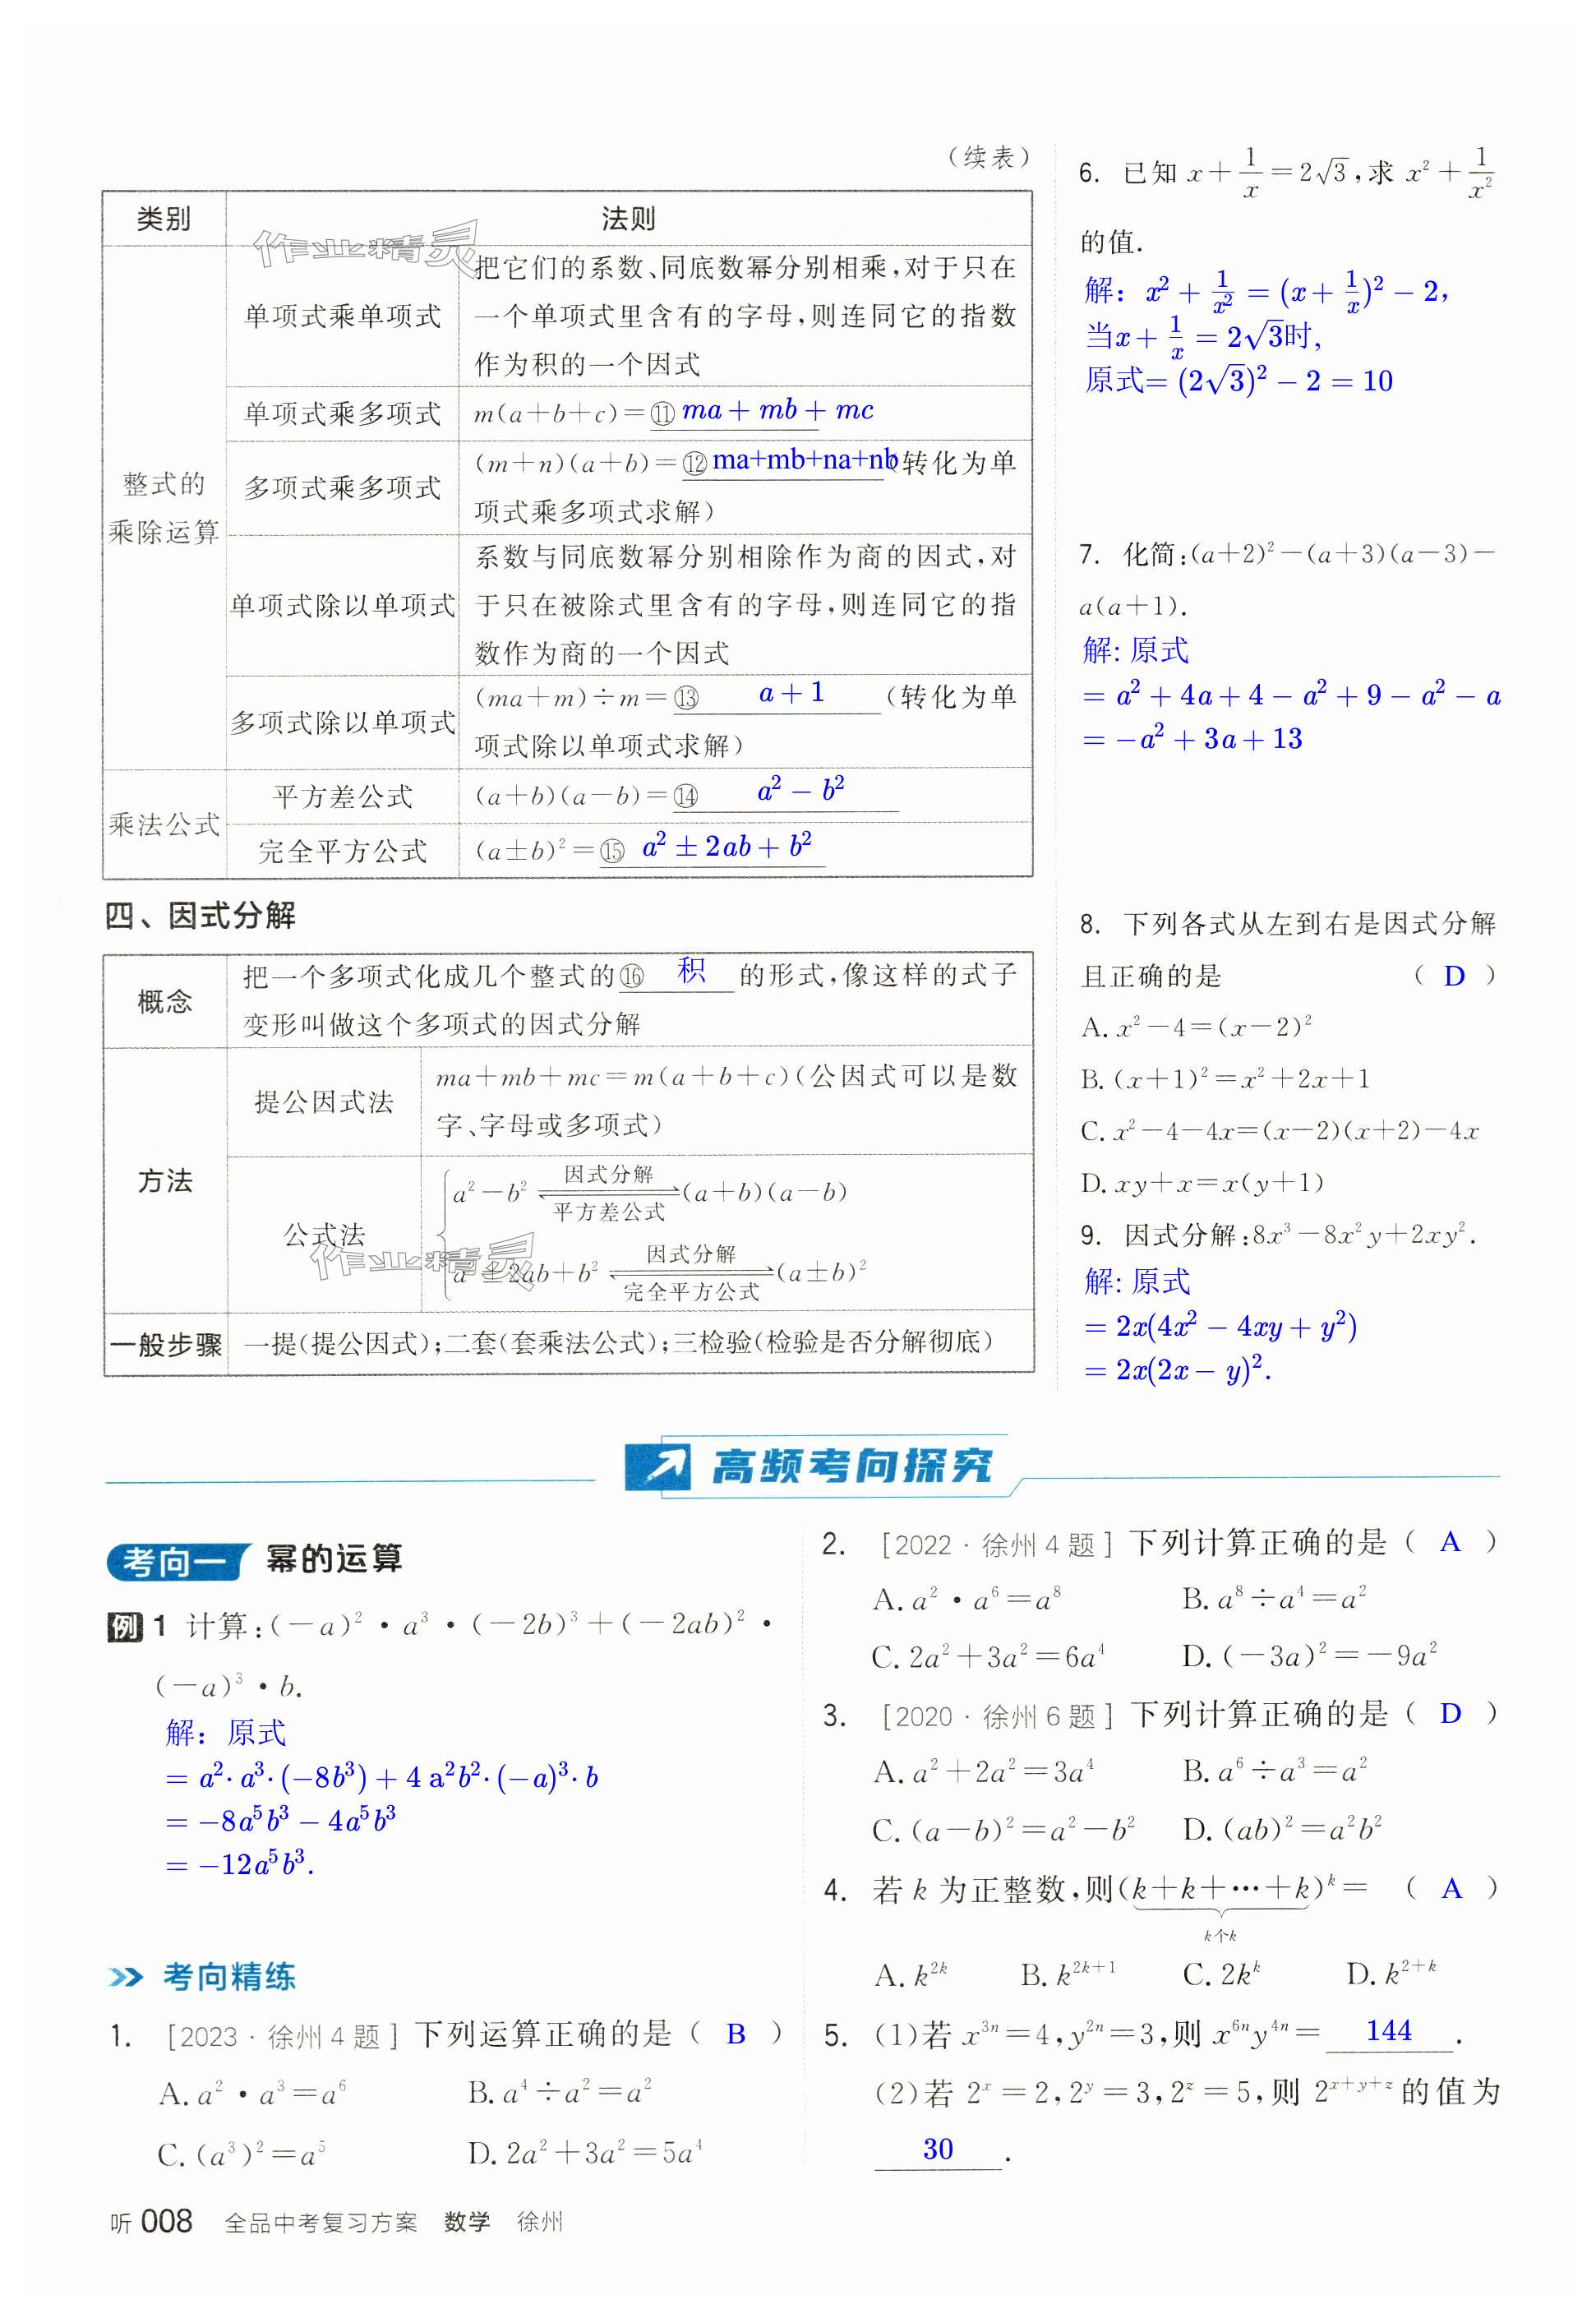 （续表）
类别 法则
作业精灵
整式的
乘除运算
单项式乘单项式
把它们的系数、同底数幂分别相乘,对于只在
一个单项式里含有的字母,则连同它的指数
作为积的一个因式
单项式乘多项式 m(a+b+c)=⑪ ma+mb+mc
多项式乘多项式
(m+n)(a+b)=⑫ ma+mb+na+nb(转化为单
项式乘多项式求解)
单项式除以单项式
系数与同底数幂分别相除作为商的因式,对
于只在被除式里含有的字母,则连同它的指
数作为商的一个因式
多项式除以单项式
(ma+m)÷m=⑬ a+1 (转化为单
项式除以单项式求解)
乘法公式
平方差公式 (a+b)(a−b)=⑭ a²−b²
完全平方公式 (a±b)²=⑮ a²±2ab+b²
四、因式分解
概念
把一个多项式化成几个整式的⑯ 积 的形式,像这样的式子
变形叫做这个多项式的因式分解
方法
提公因式法
ma+mb+mc=m(a+b+c)(公因式可以是数
字、字母或多项式)
公式法
a²−b² 因式分解 平方差公式 (a+b)(a−b)
a²±2ab+b² 因式分解 完全平方公式 (a±b)²
作业精灵
一般步骤 一提(提公因式);二套(套乘法公式);三检验(检验是否分解彻底)
6. 已知 x+1/x=2√3,求 x²+1/x²
的值.
解：x²+1/x²=(x+1/x)²−2，
当x+1/x=2√3时,
原式=(2√3)²−2=10
7. 化简:(a+2)²−(a+3)(a−3)−
a(a+1).
解: 原式
=a²+4a+4−a²+9−a²−a
=−a²+3a+13
8. 下列各式从左到右是因式分解
且正确的是 （ D ）
A. x²−4=(x−2)²
B. (x+1)²=x²+2x+1
C. x²−4−4x=(x−2)(x+2)−4x
D. xy+x=x(y+1)
9. 因式分解:8x³−8x²y+2xy².
解: 原式
=2x(4x²−4xy+y²)
=2x(2x−y)².
高频考向探究
考向一 幂的运算
例 1 计算:(−a)²·a³·(−2b)³+(−2ab)²·
(−a)³·b.
解：原式
=a²·a³·(−8b³)+4a²b²·(−a)³·b
=−8a⁵b³−4a⁵b³
=−12a⁵b³.
考向精练
1. [2023·徐州4题] 下列运算正确的是（ B ）
A. a²·a³=a⁶ B. a⁴÷a²=a²
C. (a³)²=a⁵ D. 2a²+3a²=5a⁴
2. [2022·徐州4题] 下列计算正确的是（ A ）
A. a²·a⁶=a⁸ B. a⁸÷a⁴=a²
C. 2a²+3a²=6a⁴ D. (−3a)²=−9a²
3. [2020·徐州6题] 下列计算正确的是（ D ）
A. a²+2a²=3a⁴ B. a⁶÷a³=a²
C. (a−b)²=a²−b² D. (ab)²=a²b²
4. 若 k 为正整数,则(k+k+…+k)ᵏ= （ A ）
k个k
A. k²ᵏ B. k²ᵏ⁺¹ C. 2kᵏ D. k²⁺ᵏ
5. (1)若 x³ⁿ=4,y²ⁿ=3,则 x⁶ⁿy⁴ⁿ= 144 .
(2)若 2ˣ=2,2ʸ=3,2ᶻ=5,则 2ˣ⁺ʸ⁺ᶻ 的值为
30 .
听 008 全品中考复习方案 数学 徐州